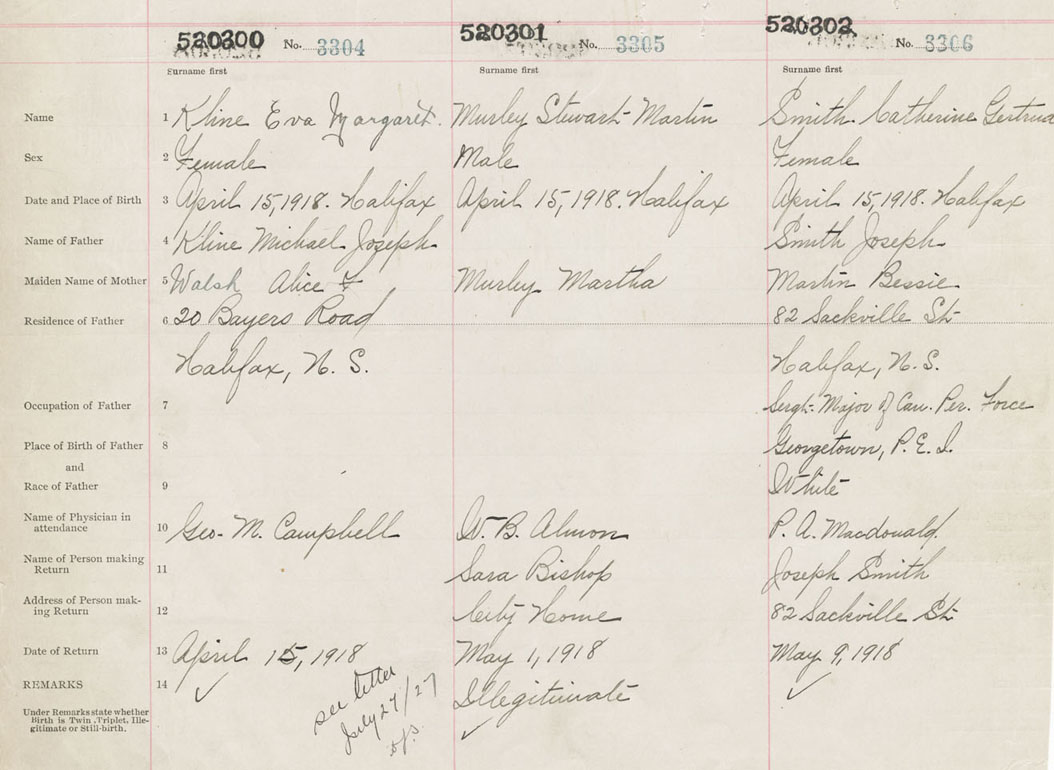 520300 No. 3304 520301 No. 3305 520302 No. 3306
Surname first Surname first Surname first
Name 1 Kline Eva Margaret. Murley Stewart Martin Smith Catherine Gertrud
Sex 2 Female Male Female
Date and Place of Birth 3 April 15, 1918. Halifax April 15, 1918. Halifax April 15, 1918. Halifax
Name of Father 4 Kline Michael Joseph Smith Joseph
Maiden Name of Mother 5 Walsh Alice F Murley Martha Martin Bessie
Residence of Father 6 20 Bayers Road 82 Sackville St
Halifax, N. S. Halifax, N. S.
Occupation of Father 7 Sergt. Major of Can. Per. Force
Place of Birth of Father 8 Georgetown, P. E. I.
and
Race of Father 9 White
Name of Physician in
attendance 10 Geo. M. Campbell W. B. Almon P. A. Macdonald.
Name of Person making
Return 11 Sara Bishop Joseph Smith
Address of Person mak-
ing Return 12 City Home 82 Sackville St.
Date of Return 13 April 15, 1918 May 1, 1918 May 9, 1918
REMARKS 14 Illegitimate
see letter
July 27/27
Under Remarks state whether
Birth is Twin, Triplet, Ille-
gitimate or Still-birth.